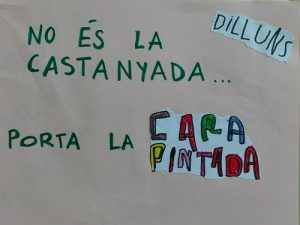 DILLUNS
NO ÉS LA
CASTANYADA...
PORTA LA CARA
PINTADA